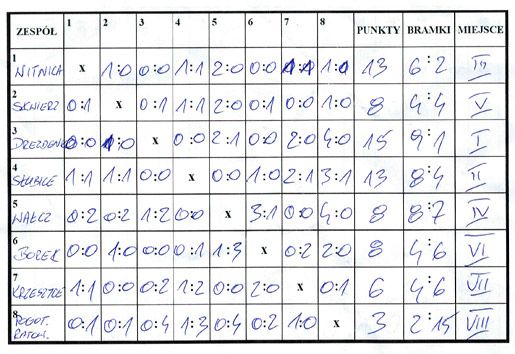 ZESPÓŁ 1 2 3 4 5 6 7 8 PUNKTY BRAMKI MIEJSCE
1 WITNICA x 1:0 0:0 1:1 2:0 0:0 1:1 1:0 13 6:2 III
2 SKWIERZ 0:1 x 0:1 1:1 2:0 0:1 0:0 1:0 8 4:4 V
3 DREZDENKO 0:0 1:0 x 0:0 2:1 0:0 2:0 4:0 15 9:1 I
4 SŁUBICE 1:1 1:1 0:0 x 0:0 1:0 2:1 3:1 13 8:4 II
5 WAŁCZ 0:2 0:2 1:2 0:0 x 3:1 0:0 4:0 8 8:7 IV
6 BOREK 0:0 1:0 0:0 0:1 1:3 x 0:2 2:0 8 4:6 VI
7 KRZESZYCE 1:1 0:0 0:2 1:2 0:0 2:0 x 0:1 6 4:6 VII
8 POGOT. RATOW. 0:1 0:1 0:4 1:3 0:4 0:2 1:0 x 3 2:15 VIII